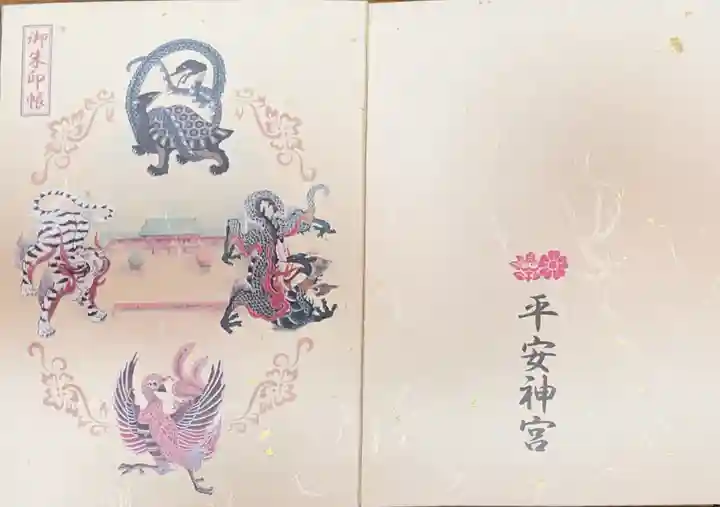 御朱印帳
平安神宮